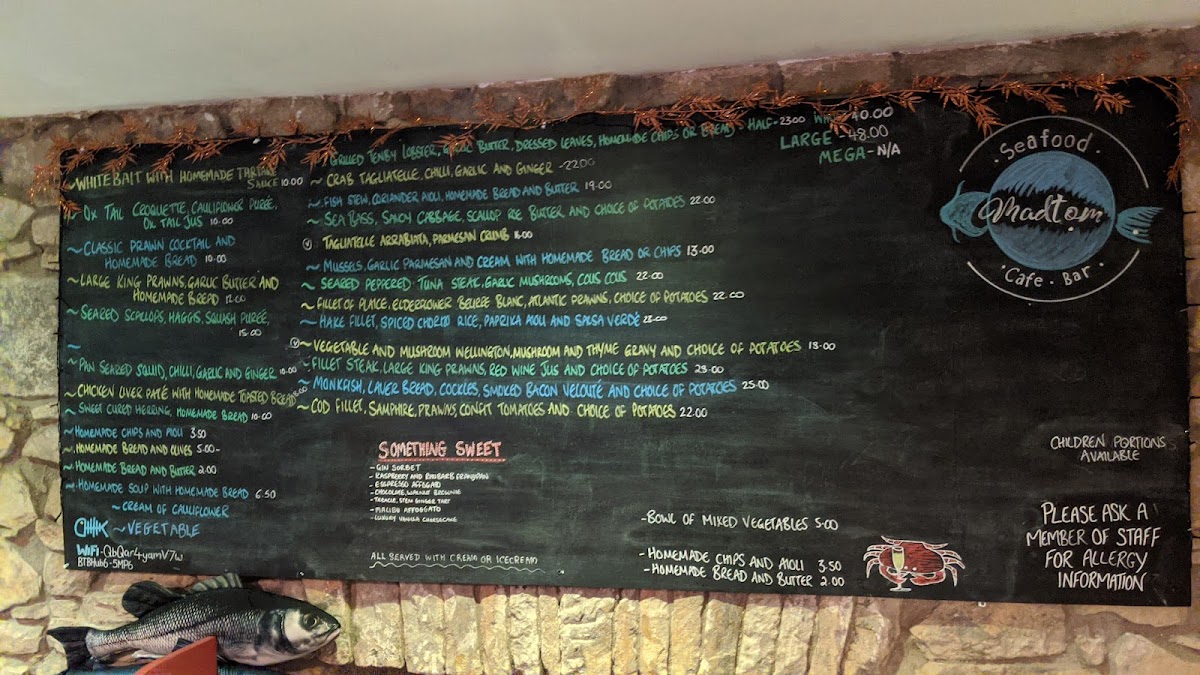 ~WHITEBAIT WITH HOMEMADE TARTARE
SAUCE 10.00
~OX TAIL CROQUETTE, CAULIFLOWER PURÉE,
OX TAIL JUS 10.00
~CLASSIC PRAWN COCKTAIL AND
HOMEMADE BREAD 10.00
~LARGE KING PRAWNS, GARLIC BUTTER AND
HOMEMADE BREAD 12.00
~SEARED SCALLOPS, HAGGIS, SQUASH PURÉE,
15.00
~
~PAN SEARED SQUID, CHILLI, GARLIC AND GINGER 10.00
~CHICKEN LIVER PATÉ WITH HOMEMADE TOASTED BREAD
~SWEET CURED HERRING, HOMEMADE BREAD 10.00
~HOMEMADE CHIPS AND AIOLI 3.50
~HOMEMADE BREAD AND OLIVES 5.00-
~HOMEMADE BREAD AND BUTTER 2.00
~HOMEMADE SOUP WITH HOMEMADE BREAD 6.50
~CREAM OF CAULIFLOWER
~VEGETABLE
WIFI-QbQar4yamV7w
BTBHub6-5MP6
~GRILLED TENBY LOBSTER, GARLIC BUTTER, DRESSED LEAVES, HOMEMADE CHIPS OR BREAD HALF-23.00 40.00
LARGE -48.00
MEGA-N/A
~CRAB TAGLIATELLE, CHILLI, GARLIC AND GINGER -22.00
~FISH STEW, CORIANDER AIOLI, HOMEMADE BREAD AND BUTTER 19.00
~SEA BASS, SAVOY CABBAGE, SCALLOP ROE BUTTER, AND CHOICE OF POTATOES 22.00
V TAGLIATELLE ARRABIATA, PARMESAN CRUMB 16.00
~MUSSELS, GARLIC PARMESAN AND CREAM WITH HOMEMADE BREAD OR CHIPS 13.00
~SEARED PEPPERED TUNA STEAK, GARLIC MUSHROOMS, COUS COUS 22.00
~FILLET OF PLAICE, ELDERFLOWER BEURRE BLANC, ATLANTIC PRAWNS, CHOICE OF POTATOES 22.00
~HAKE FILLET, SPICED CHORIZO RICE, PAPRIKA AIOLI AND SALSA VERDÉ 23.00
V ~VEGETABLE AND MUSHROOM WELLINGTON, MUSHROOM AND THYME GRAVY AND CHOICE OF POTATOES 18.00
~FILLET STEAK, LARGE KING PRAWNS, RED WINE JUS AND CHOICE OF POTATOES 28.00
~MONKFISH, LAVER BREAD, COCKLES, SMOKED BACON VELOUTÉ AND CHOICE OF POTATOES 25.00
~COD FILLET, SAMPHIRE, PRAWNS, CONFIT TOMATOES AND CHOICE OF POTATOES 22.00
SOMETHING SWEET
-GIN SORBET
-RASPBERRY AND RHUBARB FRANGIPAN
-ESSPRESSO AFFOGATO
-CHOCOLATE, WALNUT BROWNIE
-TREACLE, STEM GINGER TART
-MALIBU AFFOGGATO
-LUXURY VANILLA CHEESECAKE
ALL SERVED WITH CREAM OR ICECREAM
-BOWL OF MIXED VEGETABLES 5.00
-HOMEMADE CHIPS AND AIOLI 3.50
-HOMEMADE BREAD AND BUTTER 2.00
Seafood
Madtom
Cafe · Bar
CHILDREN PORTIONS
AVAILABLE
PLEASE ASK A
MEMBER OF STAFF
FOR ALLERGY
INFORMATION